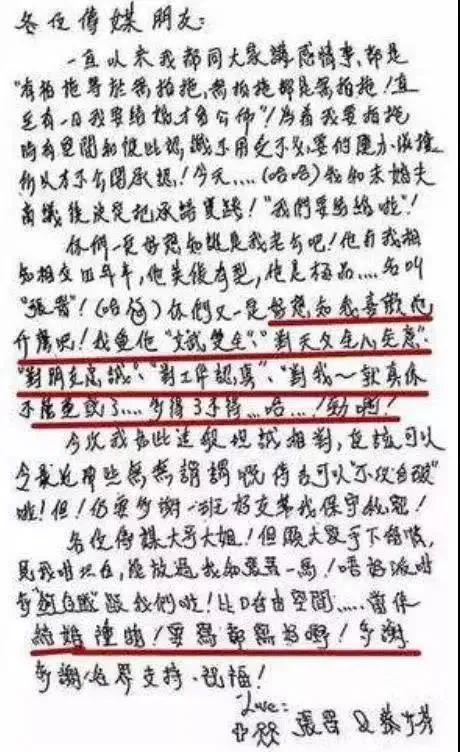 各位傳媒朋友：
一直以來我都同大家講感情事，都是
"有拍拖等於無拍拖，無拍拖都是無拍拖！直
至有一日我要結婚才會公佈"！為着我要拍拖
時有空間和彼此認識不用受不必要的壓力滋擾
所以才不公開承認！今天....(哈哈)我和未婚夫
商議後決定把承諾實踐！"我們要結婚啦"！
你們一定好想知誰是我老公吧！他和我相
知相交四年半，他英俊有型，他是極品....名叫
"張晉"！(哈哈)你們又一定好想知我喜歡他
什麼吧！我愛他"文武雙全"、"對天父全心全意"、
"對朋友忠誠"、"對工作認真"、"對我～就真係
不能 了....多得3不得...哈...！勁啊！
今次我如此這般坦誠相對，應該可以
令最近那些無無謂謂嘅傳言可以"不攻自破"
啦！但！仍要多謝一班好友幫我保守秘密！
各位傳媒大哥大姐！但願大家手下留情，
見我咁坦白，能放過我和張晉一馬！唔好派咁
多" "跟我們啦！比D自由空間.....當係
結婚 ！要寫都寫好嘢！多謝
多謝各界支持、祝福！
Love:
張晉 及 蔡少芬